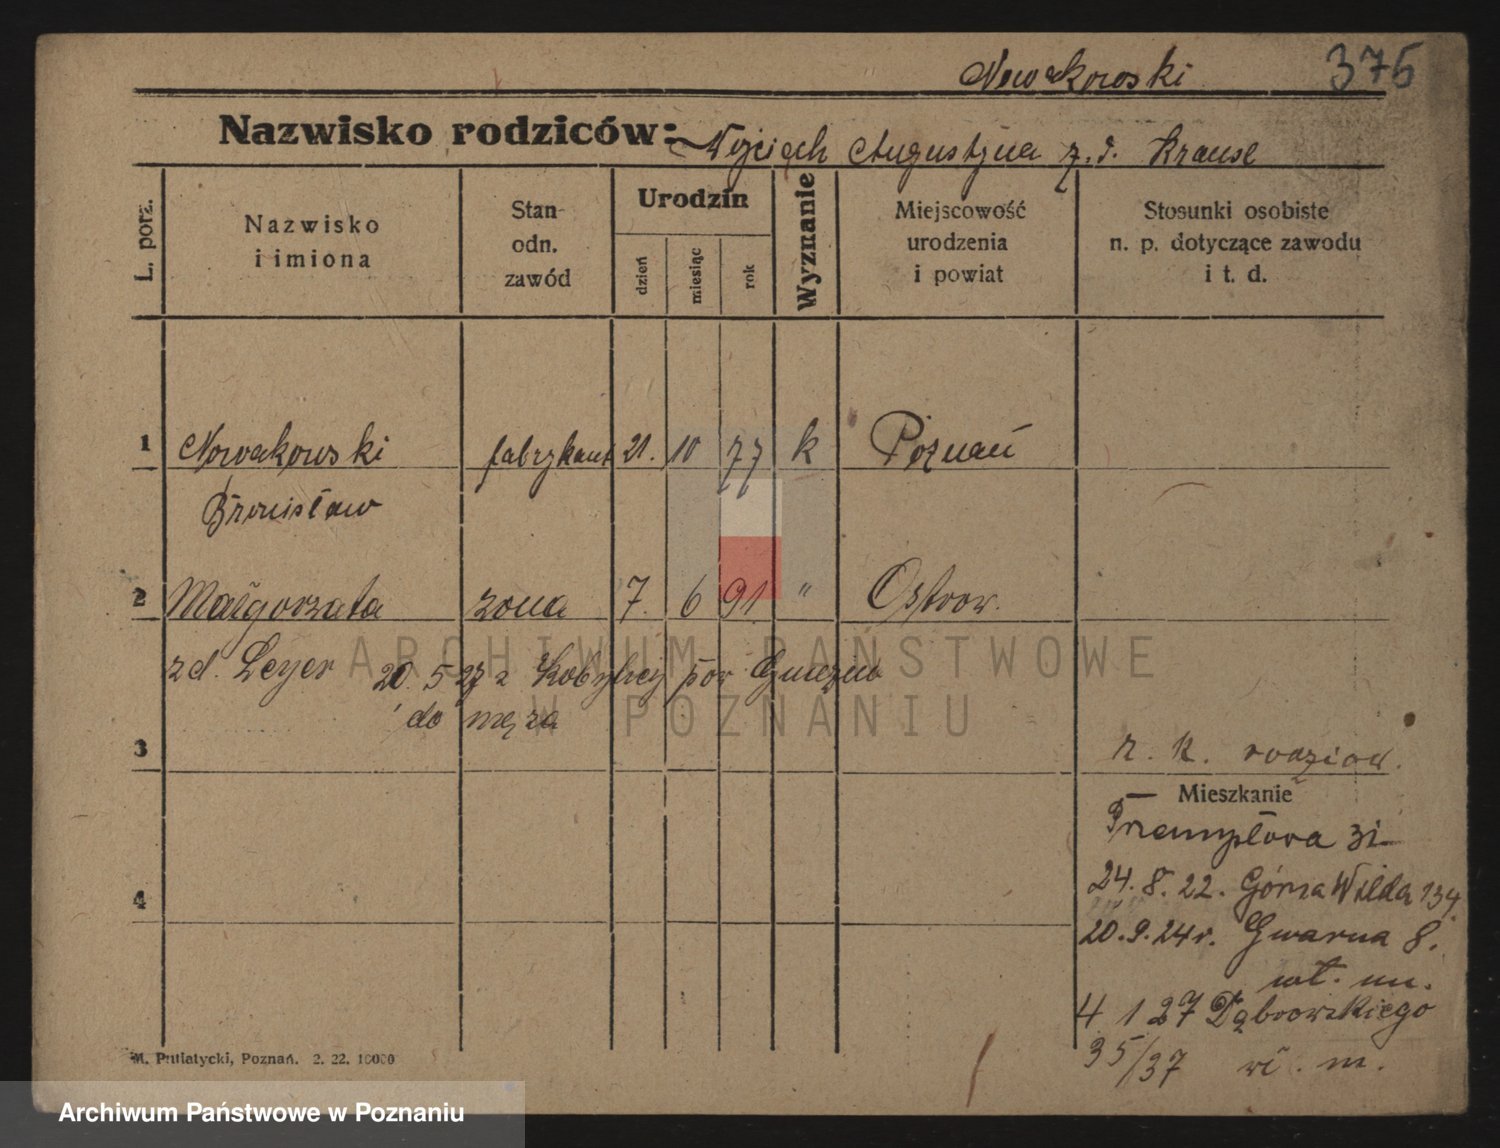 Nowakowski 376
Nazwisko rodziców: Wojciech Augustyna z. d. Krause
L. porz.
Nazwisko i imiona
Stan odn. zawód
Urodzin
dzień miesiąc rok
Wyznanie
Miejscowość urodzenia i powiat
Stosunki osobiste n. p. dotyczące zawodu i t. d.
1 Nowakowski fabrykant 21. 10 77 k Poznań
Bronisław
2 Małgorzata żona 7. 6 91 " Ostrow.
zd. Leyer 20. 5 27 z Kobylicy pow Gniezno
do męża
3
r. k. rodziców.
Mieszkanie
Przemysłowa 31
4
24. 8. 22. Górna Wilda 134.
20. 9. 24 r. Gwarna 8.
wł. m.
4 1 27 Dąbrowskiego
35/37 wł. m.
M. Putiatycki, Poznań. 2. 22. 10000
ARCHIWUM PAŃSTWOWE
W POZNANIU
Archiwum Państwowe w Poznaniu